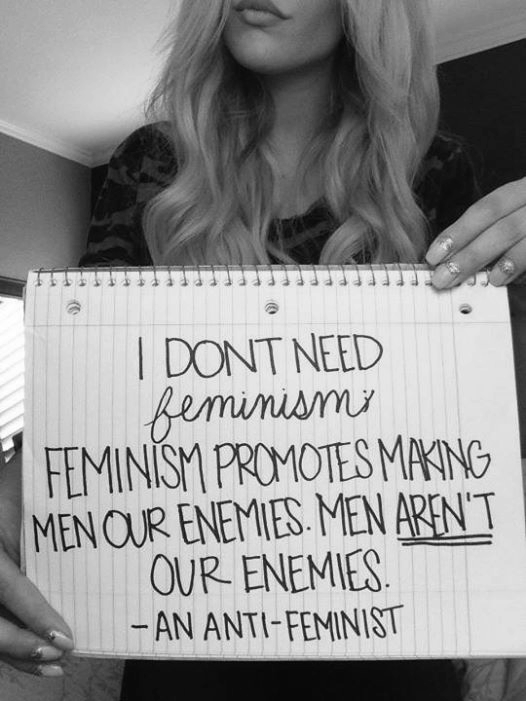 I DONT NEED
feminism;
FEMINISM PROMOTES MAKING
MEN OUR ENEMIES. MEN AREN'T
OUR ENEMIES.
- AN ANTI-FEMINIST